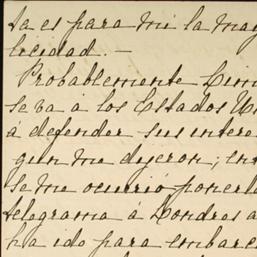 ta es para mi la may
licidad.—
Probablemente Lim
se va a los Estados Un
á defender sus intere
gun me dijeron; en
se me ocurrió ponerle
telegrama á Londres a
ha ido para embarc